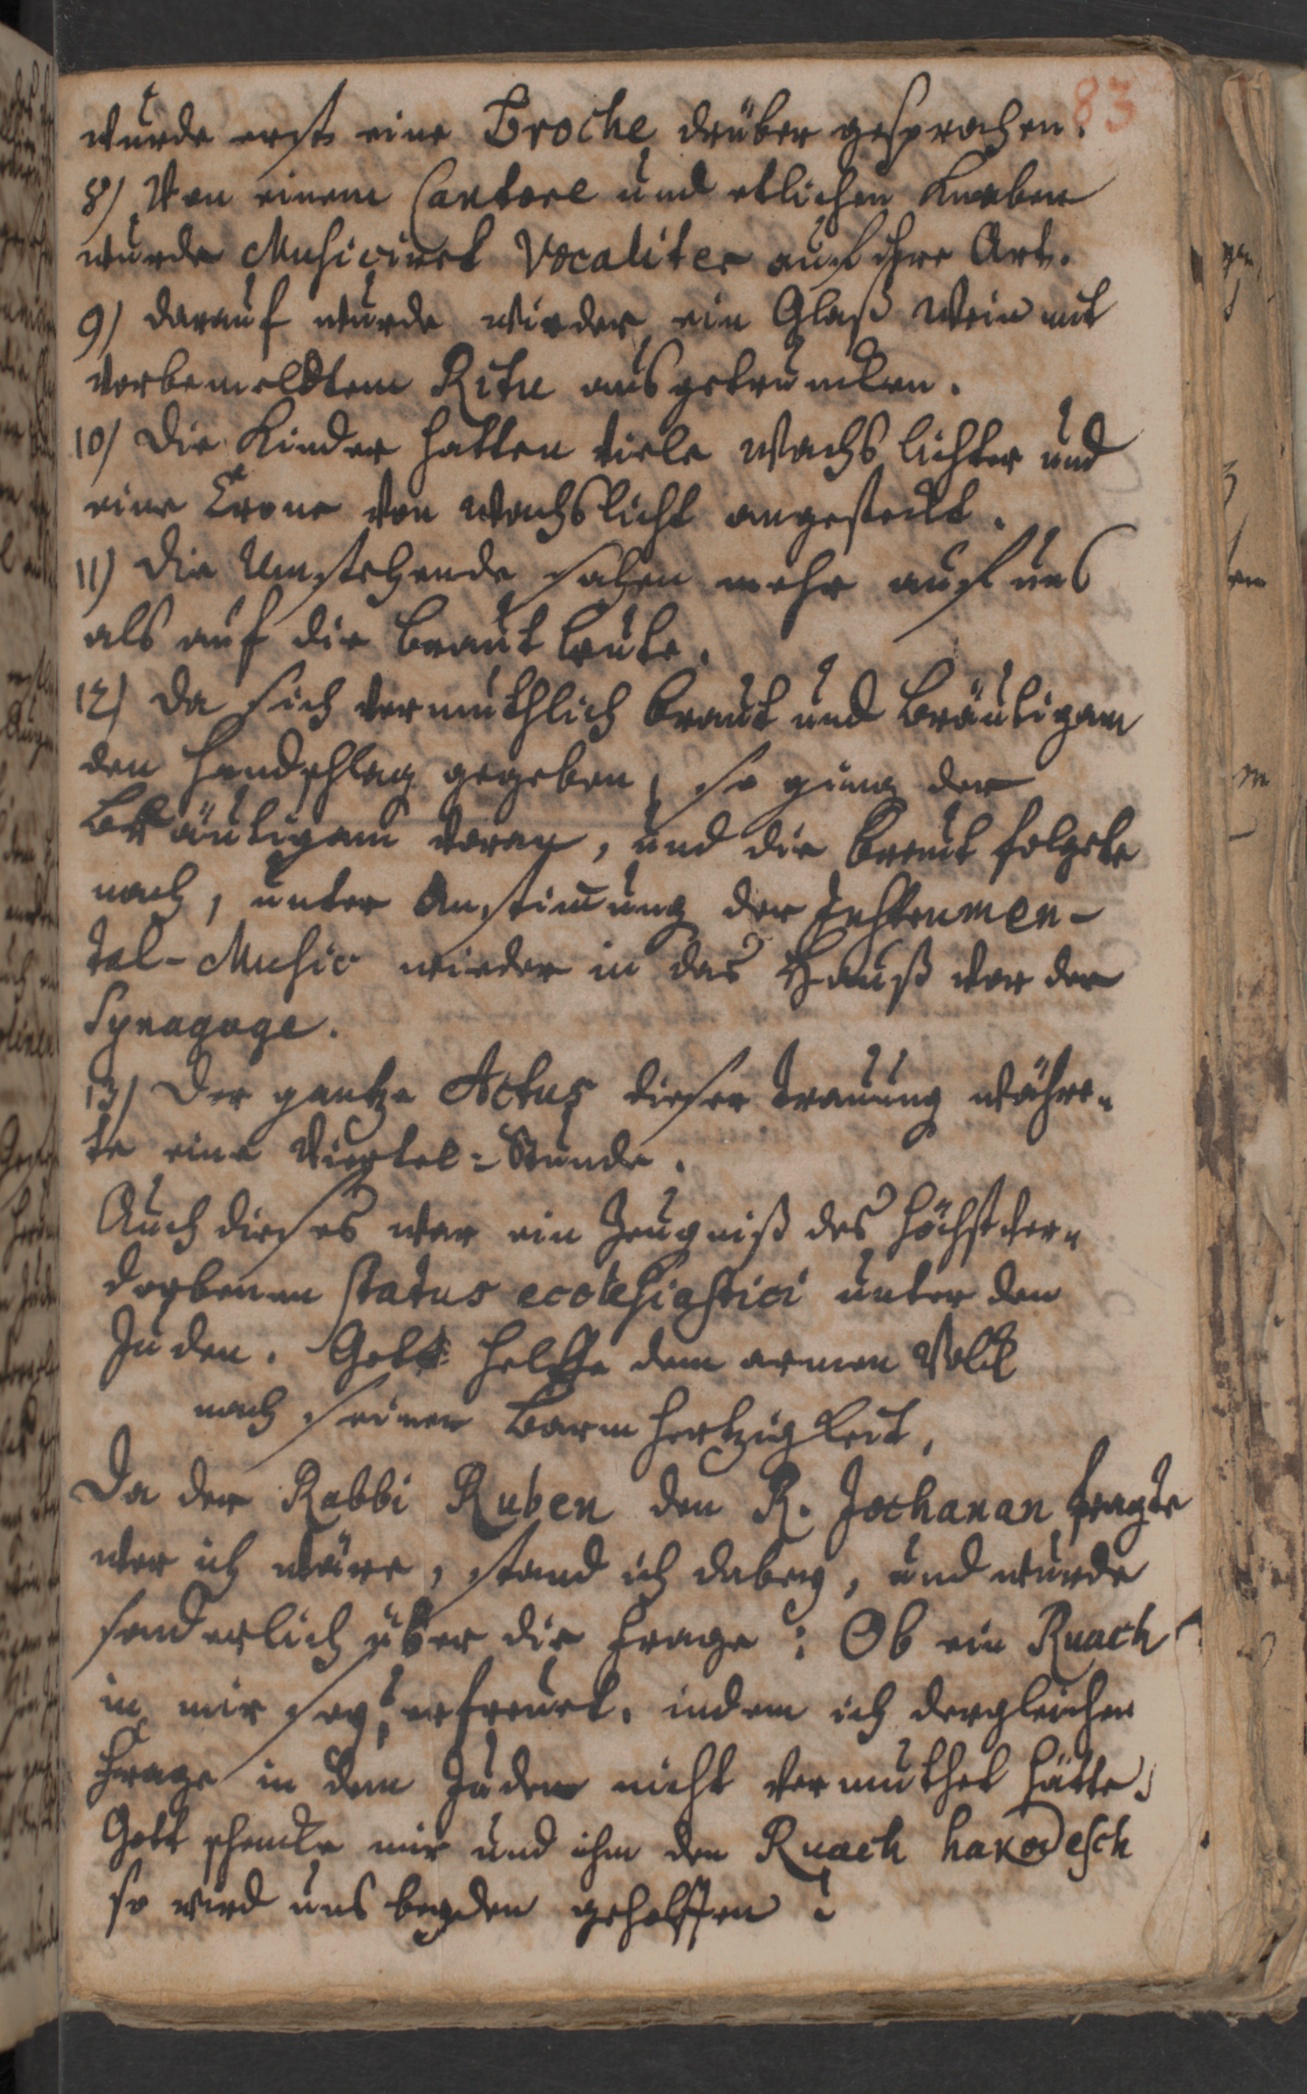 83
wurde erst eine Broche drüber gesprochen.
8) Von einem Cantore und etlichen Knaben
wurde Musiciret Vocaliter auf ihre Art.
9) darauf wurde wieder ein Glaß Wein mit
vorbemeldtem Ritu ausgetruncken.
10) die Kinder hatten viele Wachslichter und
eine Crone von Wachslicht angesteckt.
11) die Umstehende sahen mehr auf uns
als auf die Braut Leute.
12) da sich vermuthlich Braut und Bräutigam
den Handschlag gegeben, so gieng der
Bräutigam voran, und die Braut folgete
nach, unter Anstim̄ung der Instrumen-
tal-Music wieder in das Hauß vor der
Synagoge.
13) Der gantze Actus dieser Trauung währe-
te eine Viertel-Stunde.
Auch dieses war ein Zeugniß des höchst ver-
dorbenen status ecclesiastici unter den
Juden. Gott helffe dem armen Volck
nach seiner Barmhertzigkeit.
Da der Rabbi Ruben den R. Jochanan fragte
wer ich wäre, stand ich dabey, und wurde
sonderlich über die Frage: Ob ein Ruach
in mir sey? erfreuet. indem ich dergleichen
Frage in dem Juden nicht vermuthet hätte.
Gott schencke mir und ihm den Ruach hakodesch
so wird uns beyden geholffen!